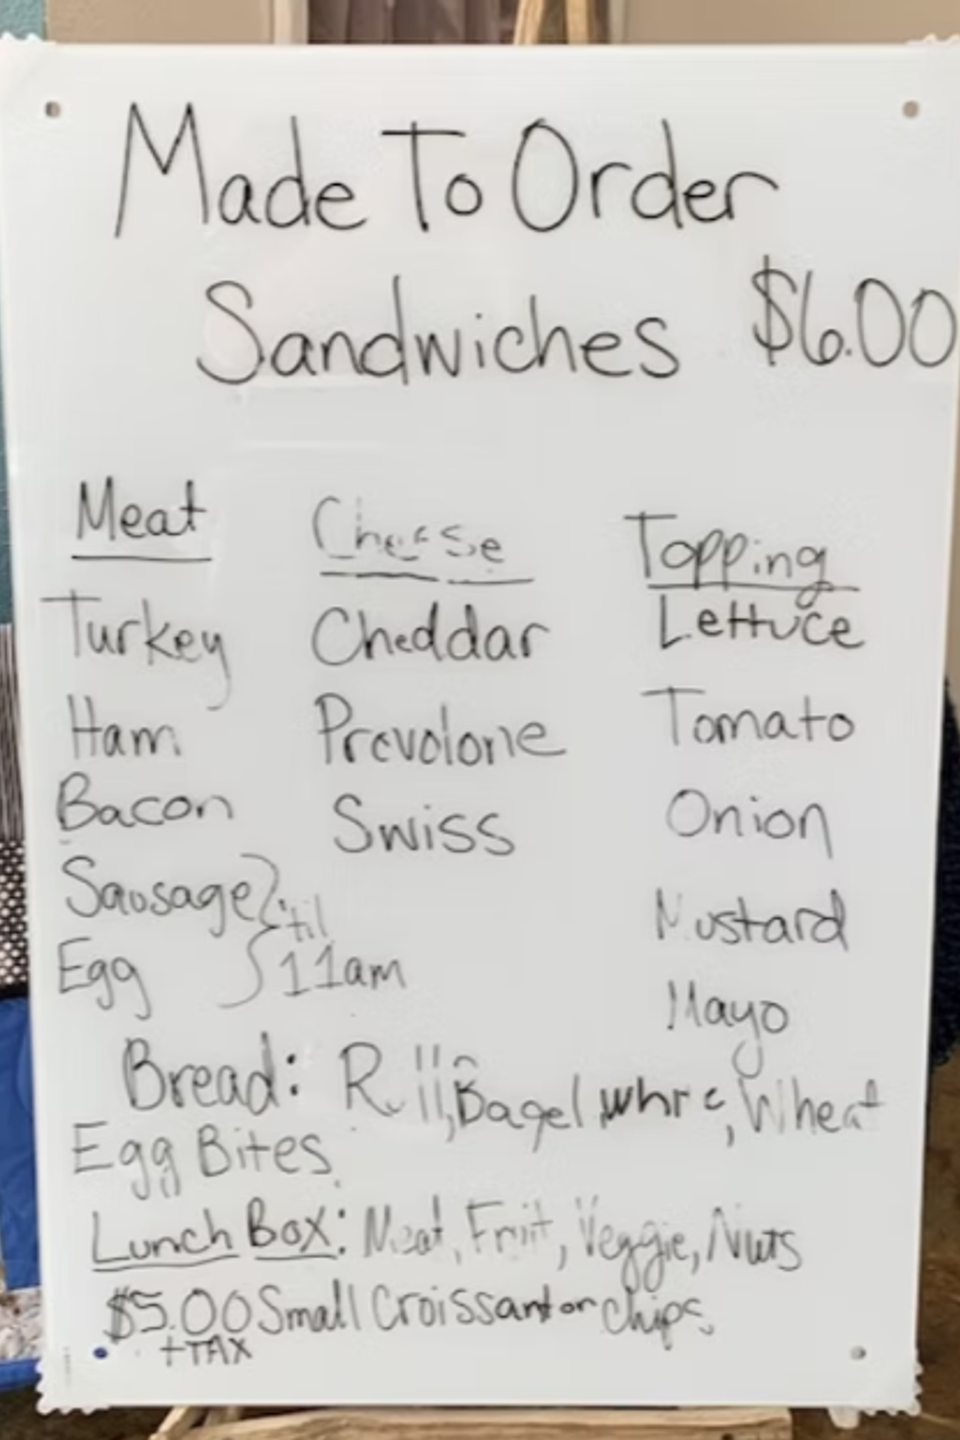 Made To Order
Sandwiches $6.00
Meat
Turkey
Ham
Bacon
Sausage } 'til
Egg } 11am
Cheese
Cheddar
Provolone
Swiss
Topping
Lettuce
Tomato
Onion
Mustard
Mayo
Bread: Roll, Bagel, White, Wheat
Egg Bites
Lunch Box: Meat, Fruit, Veggie, Nuts
$5.00 Small Croissant or chips
+TAX